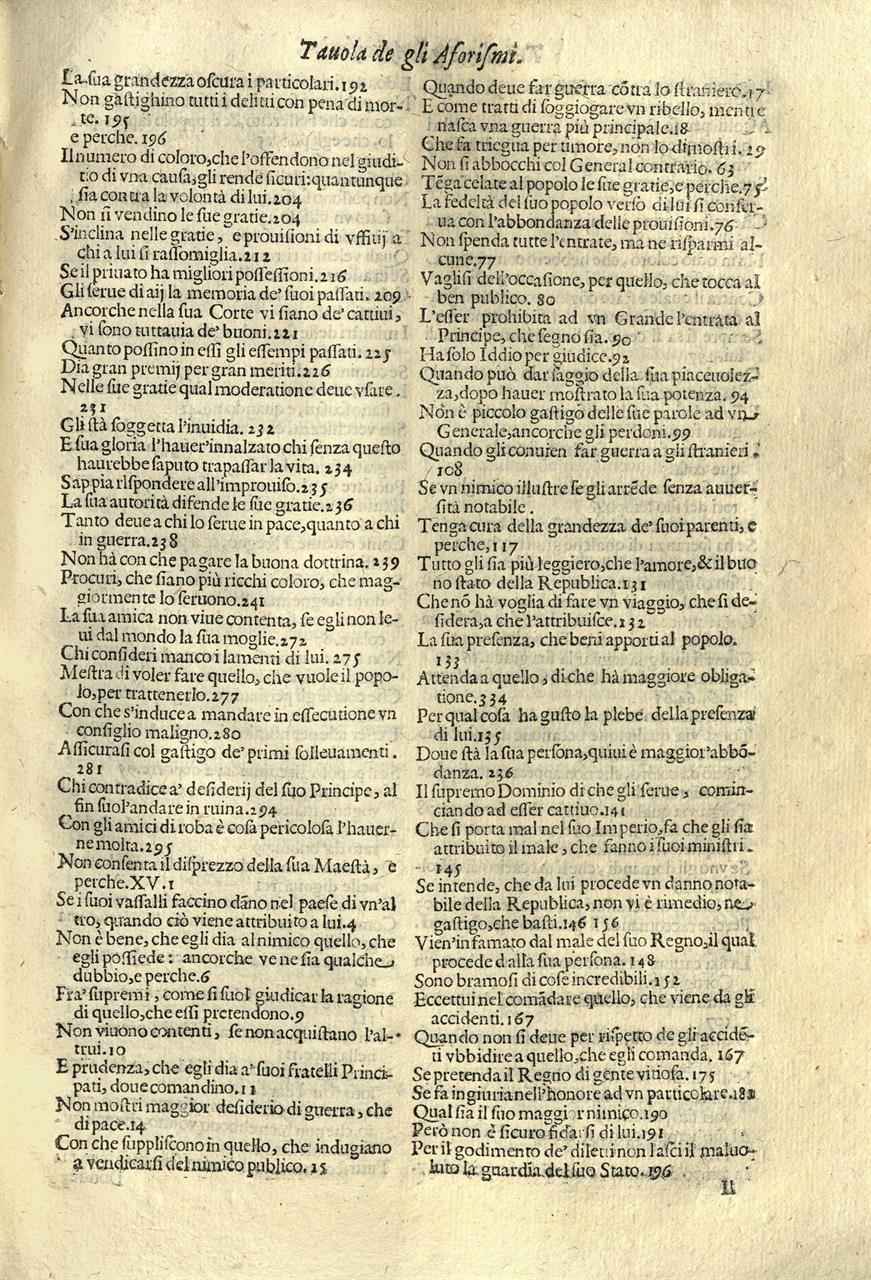 Tauola de gli Aforiſmi.
La ſua grandezza oſcura i particolari.192
Non gaſtighino tutti i delitti con pena di mor-
te. 195
e perche. 196
Il numero di coloro,che l'offendono nel giudi-
tio di vna cauſa,gli rende ſicuri:quantunque
ſia contra la volontà di lui.204
Non ſi vendino le ſue gratie.204
S'inclina nelle gratie, e prouiſioni di vffitij a
chi a lui ſi raſſomiglia.212
Se il priuato ha migliori poſſeſſioni.216
Gli ſerue di aij la memoria de' ſuoi paſſati. 209
Ancorche nella ſua Corte vi ſiano de' cattiui,
vi ſono tuttauia de' buoni.221
Quanto poſſino in eſſi gli eſſempi paſſati. 225
Dia gran premij per gran meriti.226
Nelle ſue gratie qual moderatione deue vſare.
231
Gli ſtà ſoggetta l'inuidia. 232
E ſua gloria l'hauer'innalzato chi ſenza queſto
haurebbe ſaputo trapaſſar la vita. 234
Sappia riſpondere all'improuiſo.235
La ſua autorità difende le ſue gratie.236
Tanto deue a chi lo ſerue in pace,quanto a chi
in guerra.238
Non hà con che pagare la buona dottrina. 239
Procuri, che ſiano più ricchi coloro, che mag-
giormente lo ſeruono.241
La ſua amica non viue contenta, ſe egli non le-
ui dal mondo la ſua moglie.272
Chi conſideri manco i lamenti di lui. 275
Meſtra di voler fare quello, che vuole il popo-
lo,per trattenerlo.277
Con che s'induce a mandare in eſſecutione vn
conſiglio maligno.280
Aſſicuraſi col gaſtigo de' primi ſolleuamenti.
281
Chi contradice a' deſiderij del ſuo Principe, al
fin ſuol'andare in ruina.294
Con gli amici di roba è coſa pericoloſa l'hauer-
ne molta.295
Non conſenta il diſprezzo della ſua Maeſtà, e
perche.XV.1
Se i ſuoi vaſſalli faccino dāno nel paeſe di vn'al
tro, quando ciò viene attribuito a lui.4
Non è bene, che egli dia al nimico quello, che
egli poſſiede: ancorche ve ne ſia qualche
dubbio,e perche.6
Fra' ſupremi, come ſi ſuol giudicar la ragione
di quello,che eſſi pretendono.9
Non viuono contenti, ſe non acquiſtano l'al-
trui.10
E prudenza, che egli dia a' ſuoi fratelli Princi-
pati, doue comandino.11
Non moſtri maggior deſiderio di guerra, che
di pace.14
Con che ſuppliſcono in quello, che indugiano
a vendicarſi del nimico publico. 15
Quando deue far guerra cōtra lo ſtraniero.17
E come tratti di ſoggiogare vn ribello, mentre
naſca vna guerra più principale.18
Che fa triegua per timore, non lo dimoſtri. 29
Non ſi abbocchi col General contrario. 63
Tēga celate al popolo le ſue gratie,e perche.75
La fedeltà del ſuo popolo verſo di lui ſi conſer-
ua con l'abbondanza delle prouiſioni.76
Non ſpenda tutte l'entrate, ma ne riſparmi al-
cune.77
Vagliſi dell'occaſione, per quello, che tocca al
ben publico. 80
L'eſſer prohibita ad vn Grande l'entrata al
Principe, che ſegno ſia. 90
Ha ſolo Iddio per giudice.92
Quando può dar ſaggio della ſua piaceuolez-
za,dopo hauer moſtrato la ſua potenza. 94
Non è piccolo gaſtigo delle ſue parole ad vn
Generale,ancorche gli perdoni.99
Quando gli conuien far guerra a gli ſtranieri.
108
Se vn nimico illuſtre ſe gli arrēde ſenza auuer-
ſità notabile.
Tenga cura della grandezza de' ſuoi parenti, e
perche,117
Tutto gli ſia più leggiero,che l'amore,& il buo
no ſtato della Republica.131
Che nō hà voglia di fare vn viaggio, che ſi de-
ſidera,a che l'attribuiſce.132
La ſua preſenza, che beni apporti al popolo.
133
Attenda a quello, di che hà maggiore obliga-
tione.334
Per qual coſa ha guſto la plebe della preſenza
di lui.135
Doue ſtà la ſua perſona,quiui è maggior'abbō-
danza. 236
Il ſupremo Dominio di che gli ſerue, comin-
ciando ad eſſer cattiuo.141
Che ſi porta mal nel ſuo Imperio,fa che gli ſia
attribuito il male, che fanno i ſuoi miniſtri.
145
Se intende, che da lui procede vn danno nota-
bile della Republica, non vi è rimedio, ne
gaſtigo,che baſti.146 156
Vien'infamato dal male del ſuo Regno,il qual
procede dalla ſua perſona. 148
Sono bramoſi di coſe incredibili.152
Eccettui nel comādare quello, che viene da gli
accidenti.167
Quando non ſi deue per riſpetto de gli accidē-
ti vbbidire a quello,che egli comanda. 167
Se pretenda il Regno di gente vitioſa. 175
Se fa ingiuria nell'honore ad vn particolare.181
Qual ſia il ſuo maggior nimico.190
Però non è ſicuro fidarſi di lui.191
Per il godimento de' diletti non laſci il maluo-
luto la guardia del ſuo Stato. 196
Il